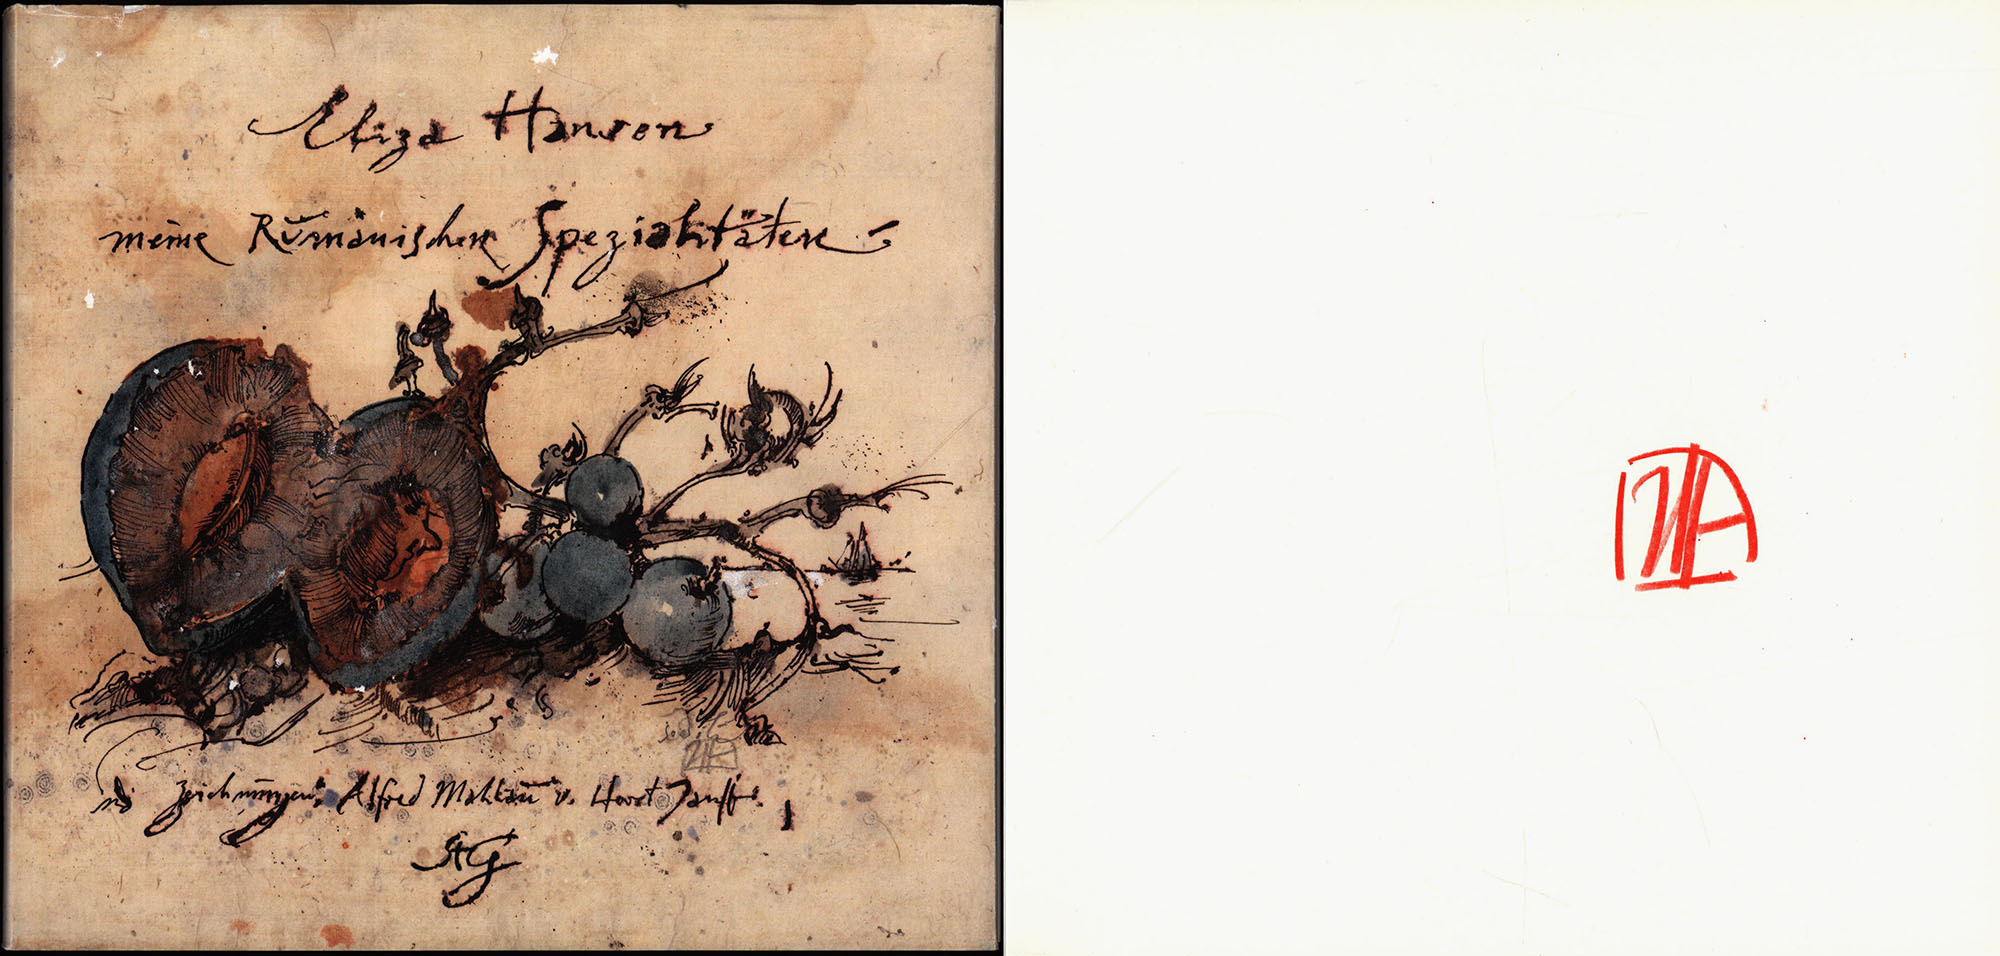 Eliza Hansen
meine Rŭmänischen Spezialitäten
Zeichnŭngen, Alfred Mahlaŭ v. Horst Janssen
StG